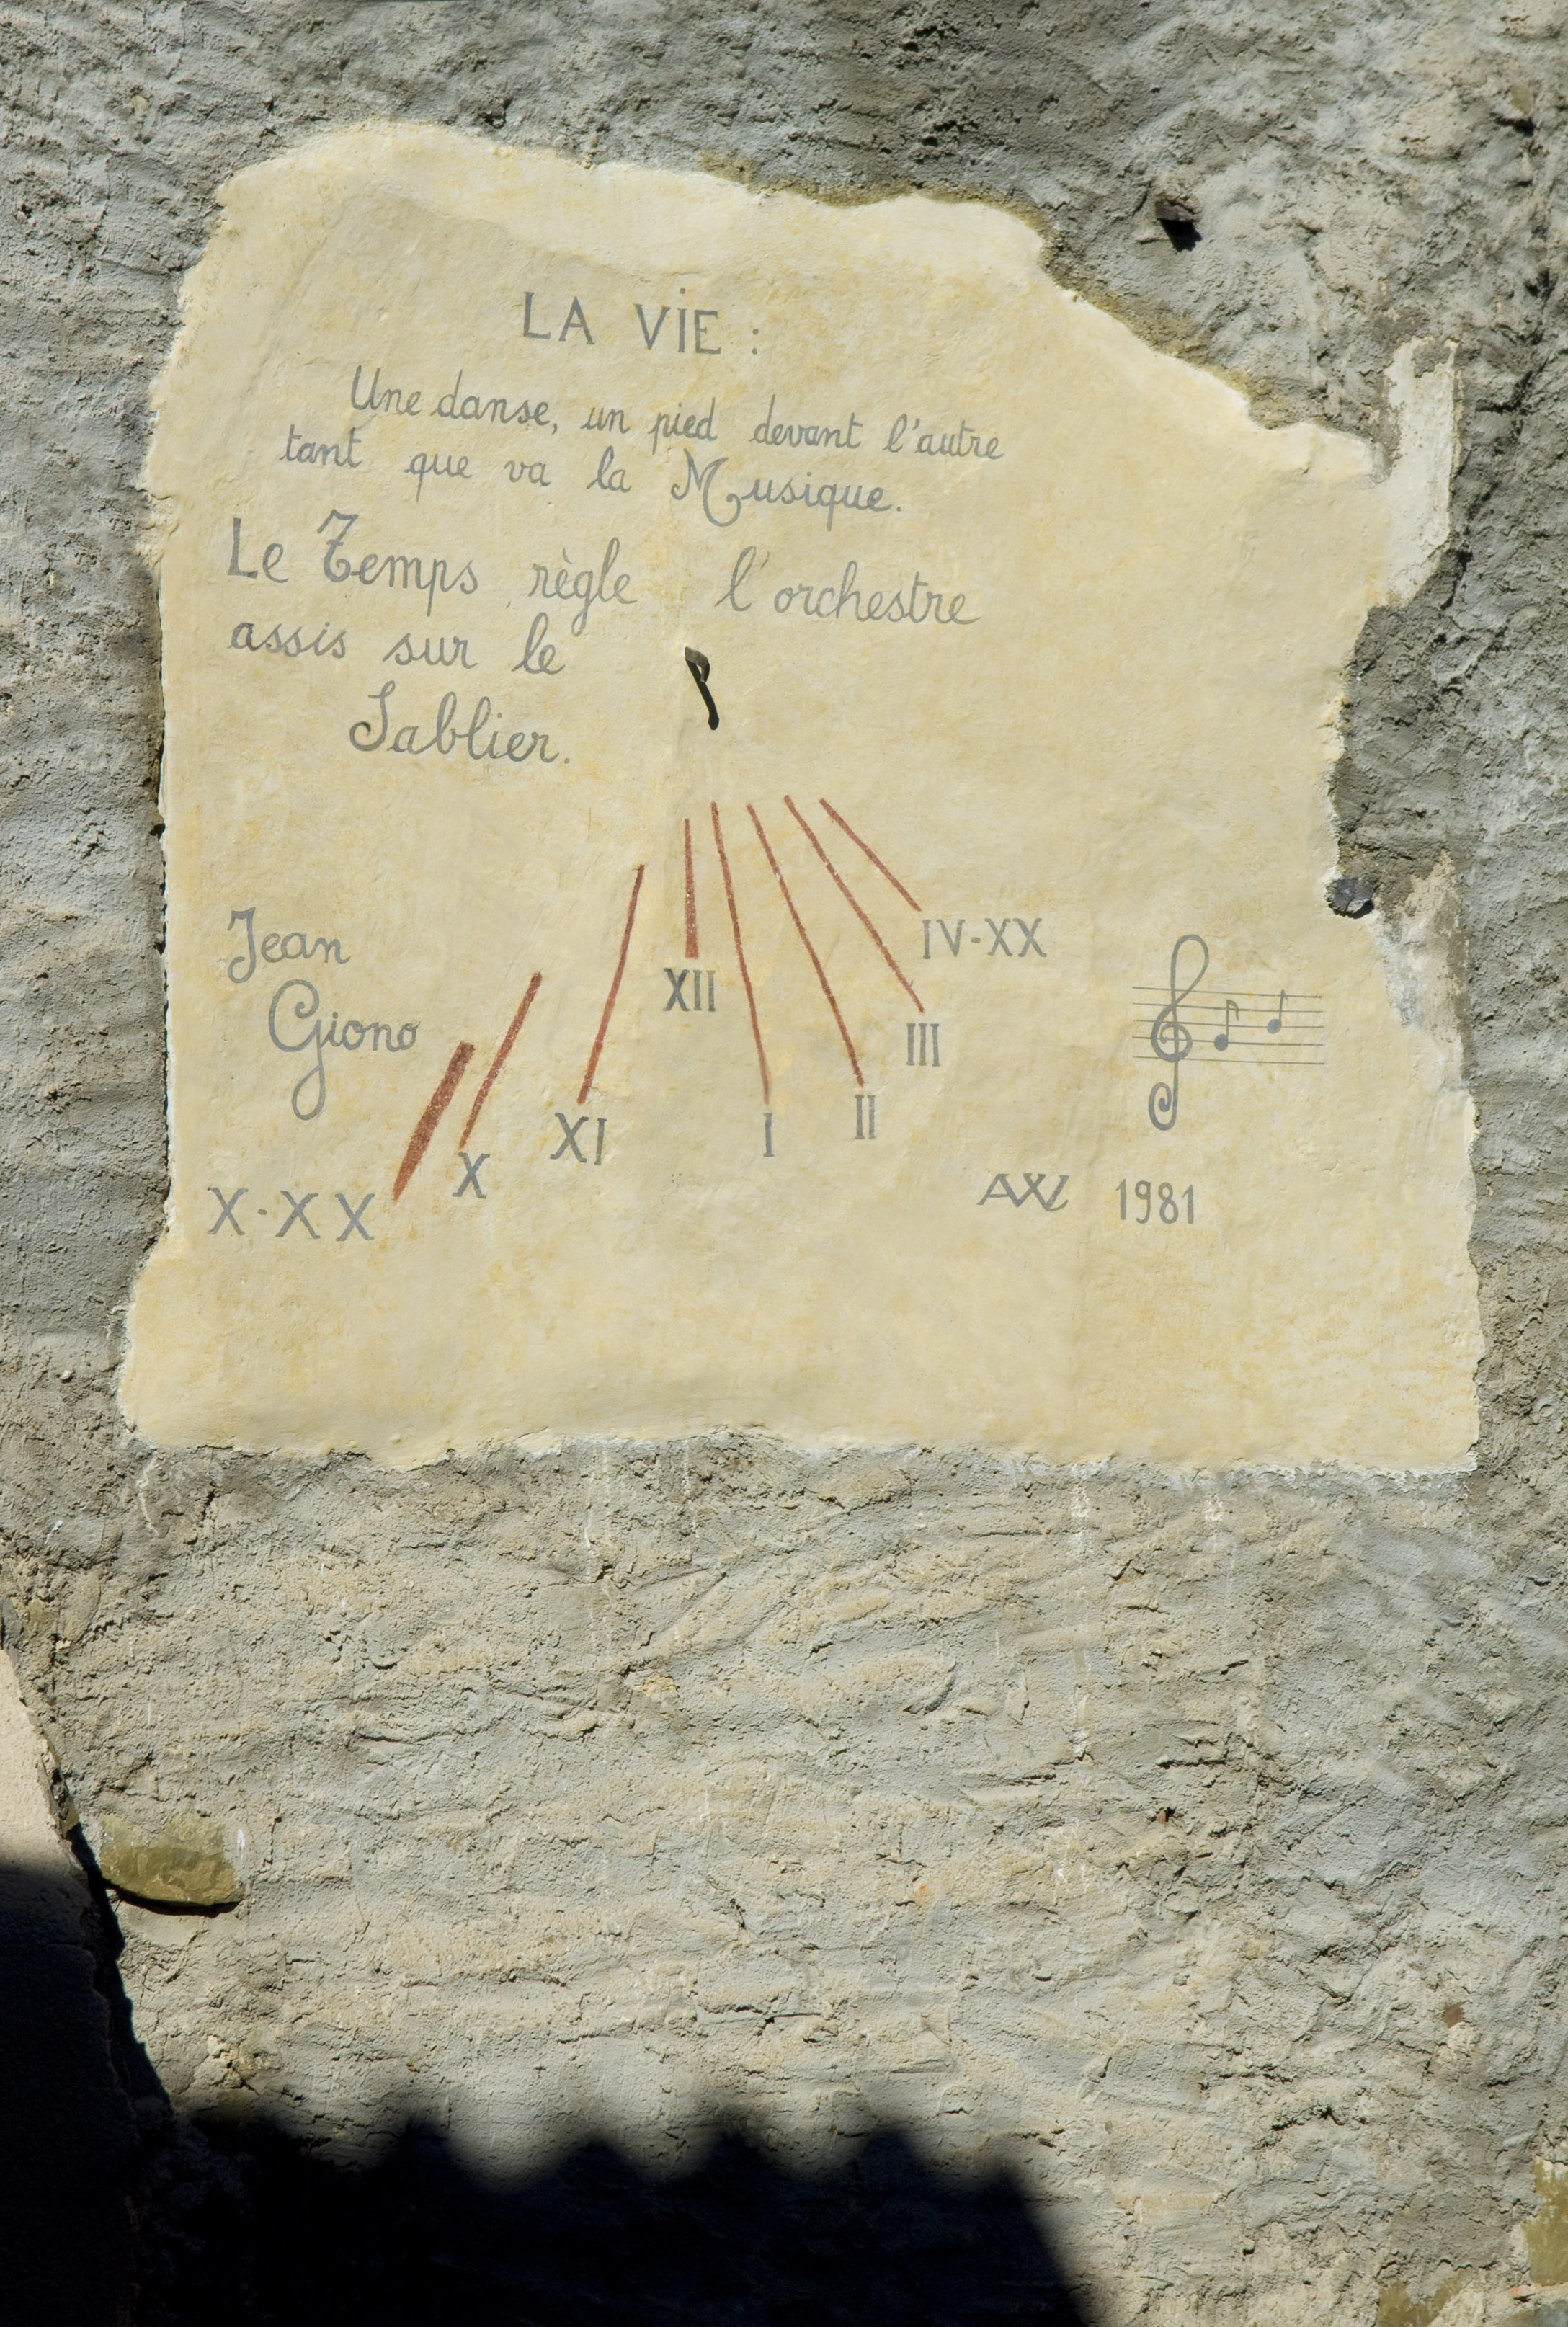 LA ViE :
Une danse, un pied devant l'autre
tant que va la Musique.
Le Temps règle l'orchestre
assis sur le
Sablier.
Jean
Giono
X·XX
X
XI
XII
I
II
III
IV-XX
AW 1981